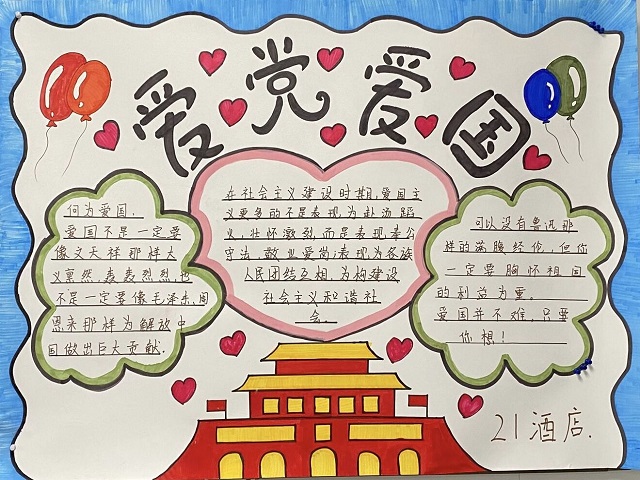 爱党爱国
何为爱国.
爱国不是一定要
像文天祥那样大
义凛然,轰轰烈烈,也
不是一定要像毛泽东,周
恩来那样为解放中
国做出巨大贡献.
在社会主义建设时期,爱国主
义更多的不是表现为赴汤蹈
火,壮怀激烈,而是表现遵公
守法,敬业爱岗;表现为各族
人民团结互相,为构建设
社会主义和谐社
会.
可以没有鲁迅那
样的满腹经伦,但你
一定要胸怀祖国
的利益为重。
爱国并不难,只要
你想!
21酒店.